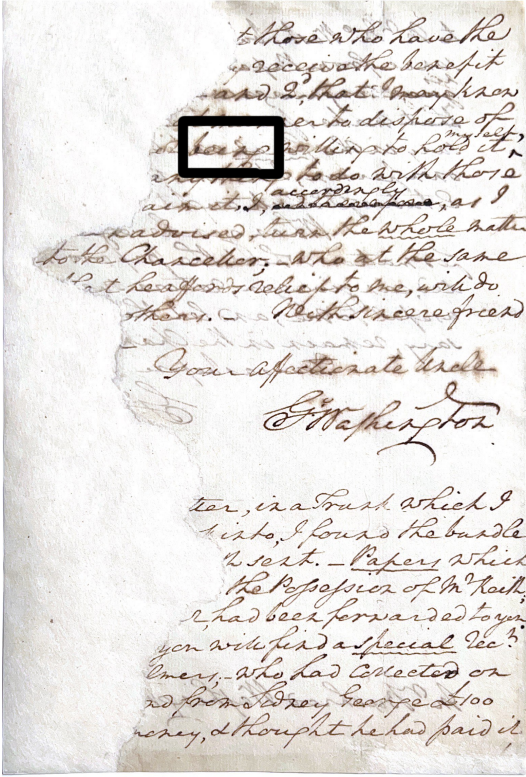 those who have the
receive the benefit
and 2d, that I may know
er to dispose of
being willing to hold it myself,
to do with those
aim it. I, accordingly, as I
advised, turn the whole matte
to the Chancellor; - who at the same
t he affords relief to me, will do
others. - With sincere friend
Your affectionate Uncle
Go Washington
tter, in a Trunk which I
into, I found the bundle
sent. - Papers which
the Possession of Mr Keith
r, had been forwarded to you
you will find a special rec't
lmers, - who had collected on
nd from Sidney George £100
oney, & thought he had paid it